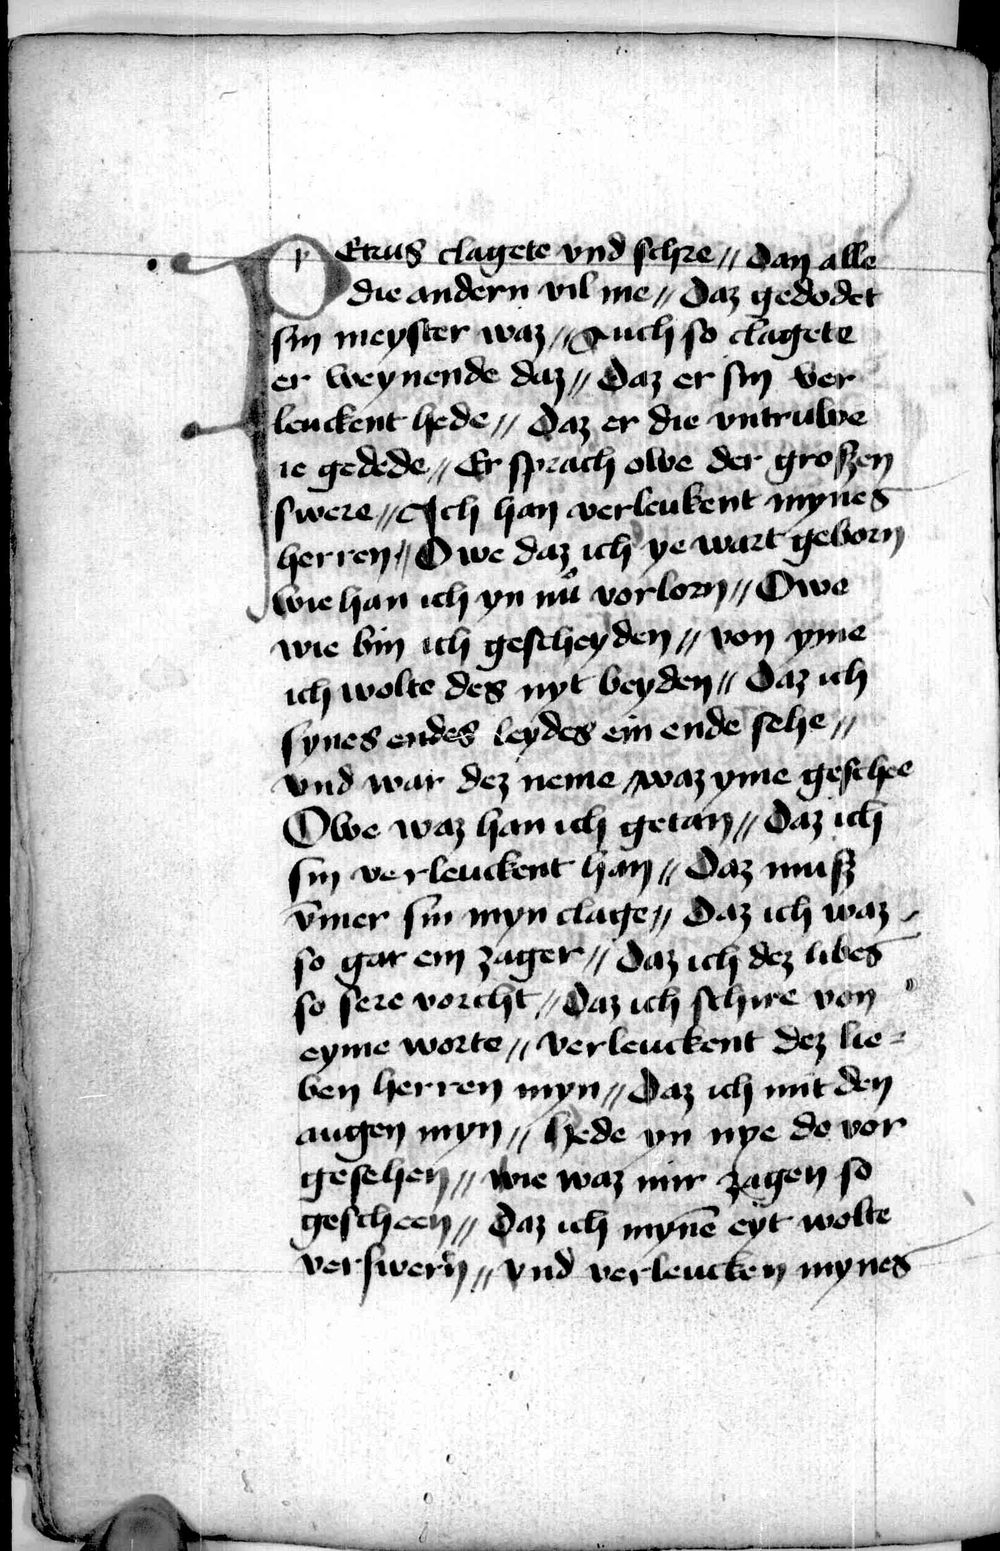 PEtrus clagete vnd schre // Dan alle
die andern vil me // Daz gedodet
sin meyster waz // Auch so clagete
er weynende daz // Daz er sin ver
leuckent hede // Daz er die vntruwe
ie gedede // Er sprach owe der groszen
swere // Ich han verleukent mynes
herren // Owe daz ich ye wart geborn
wie han ich yn nuͦ vorlorn // Owe
wie bin ich gescheyden // von yme
ich wolte des nyt beyden // Daz ich
synes endes leydes ein ende sehe //
vnd war dez neme // waz yme geschee
Owe waz han ich getan // Daz ich
sin verleuckent han // Daz musz
v̄mer sin myn clage // Daz ich waz
so gar ein zager // Daz ich dez libes
so sere vorcht // Daz ich schire von
eyme worte // verleuckent dez lie=
ben herren myn // Daz ich mit den
augen myn // hede yn nye do vor
gesehen // wie waz mir zagen so
gescheen // Daz ich mynē eyt wolte
verswern // vnd verleucken mynes